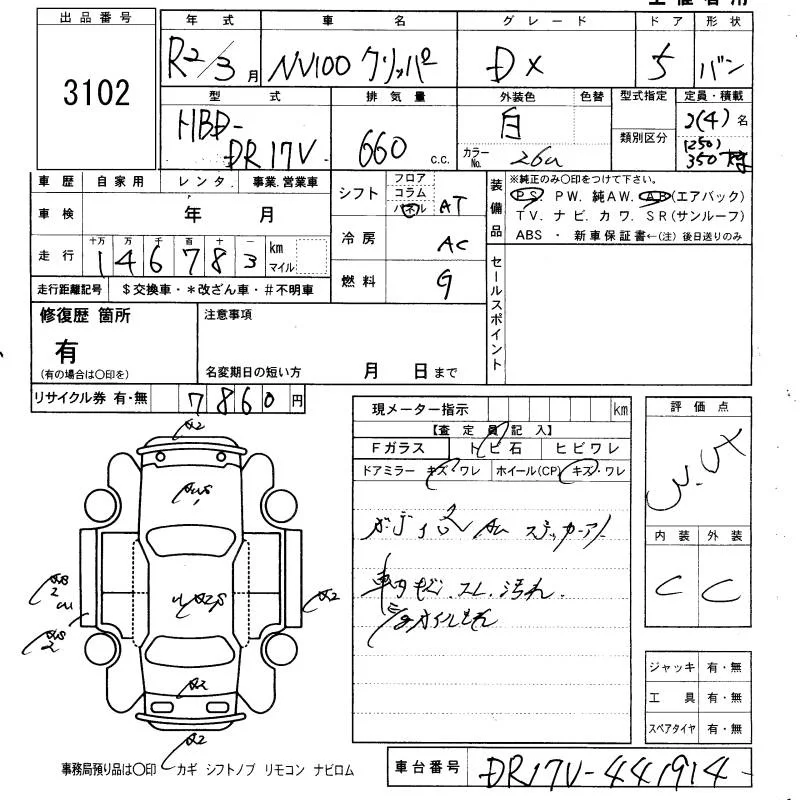 出品番号
3102
年式
R2/3月
車名
NV100 クリッパー
グレード
DX
ドア
5
形状
バン
型式
HBD-
DR17V
排気量
660 c.c.
外装色
白
色替
カラーNo.
26u
型式指定
類別区分
定員・積載
2(4)名
(250)
350
車歴 自家用 レンタ. 事業.営業車
車検 年 月
走行 十万 万 千 百 十 一
146783 km マイル
走行距離記号 $交換車・*改ざん車・#不明車
シフト フロア コラム パネル AT
冷房 AC
燃料 G
装備品
※純正のみ〇印をつけて下さい。
PS. PW. 純AW. AB(エアバック)
TV. ナビ. カワ. SR(サンルーフ)
ABS ・ 新車保証書←(注) 後日送りのみ
セールスポイント
修復歴 箇所
有
(有の場合は〇印を)
注意事項
名変期日の短い方 月 日まで
リサイクル券 有・無 7860円
現メーター指示 km
【査定員記入】
Fガラス トビ石 ヒビワレ
ドアミラー キズ・ワレ ホイール(CP) キズ・ワレ
車内 スレ.汚れ.
オイルもれ
評価点
内装 外装
C C
ジャッキ 有・無
工具 有・無
スペアタイヤ 有・無
A2
A2
A2
A2
事務局預り品は〇印 カギ シフトノブ リモコン ナビロム
車台番号 DR17V-441914-